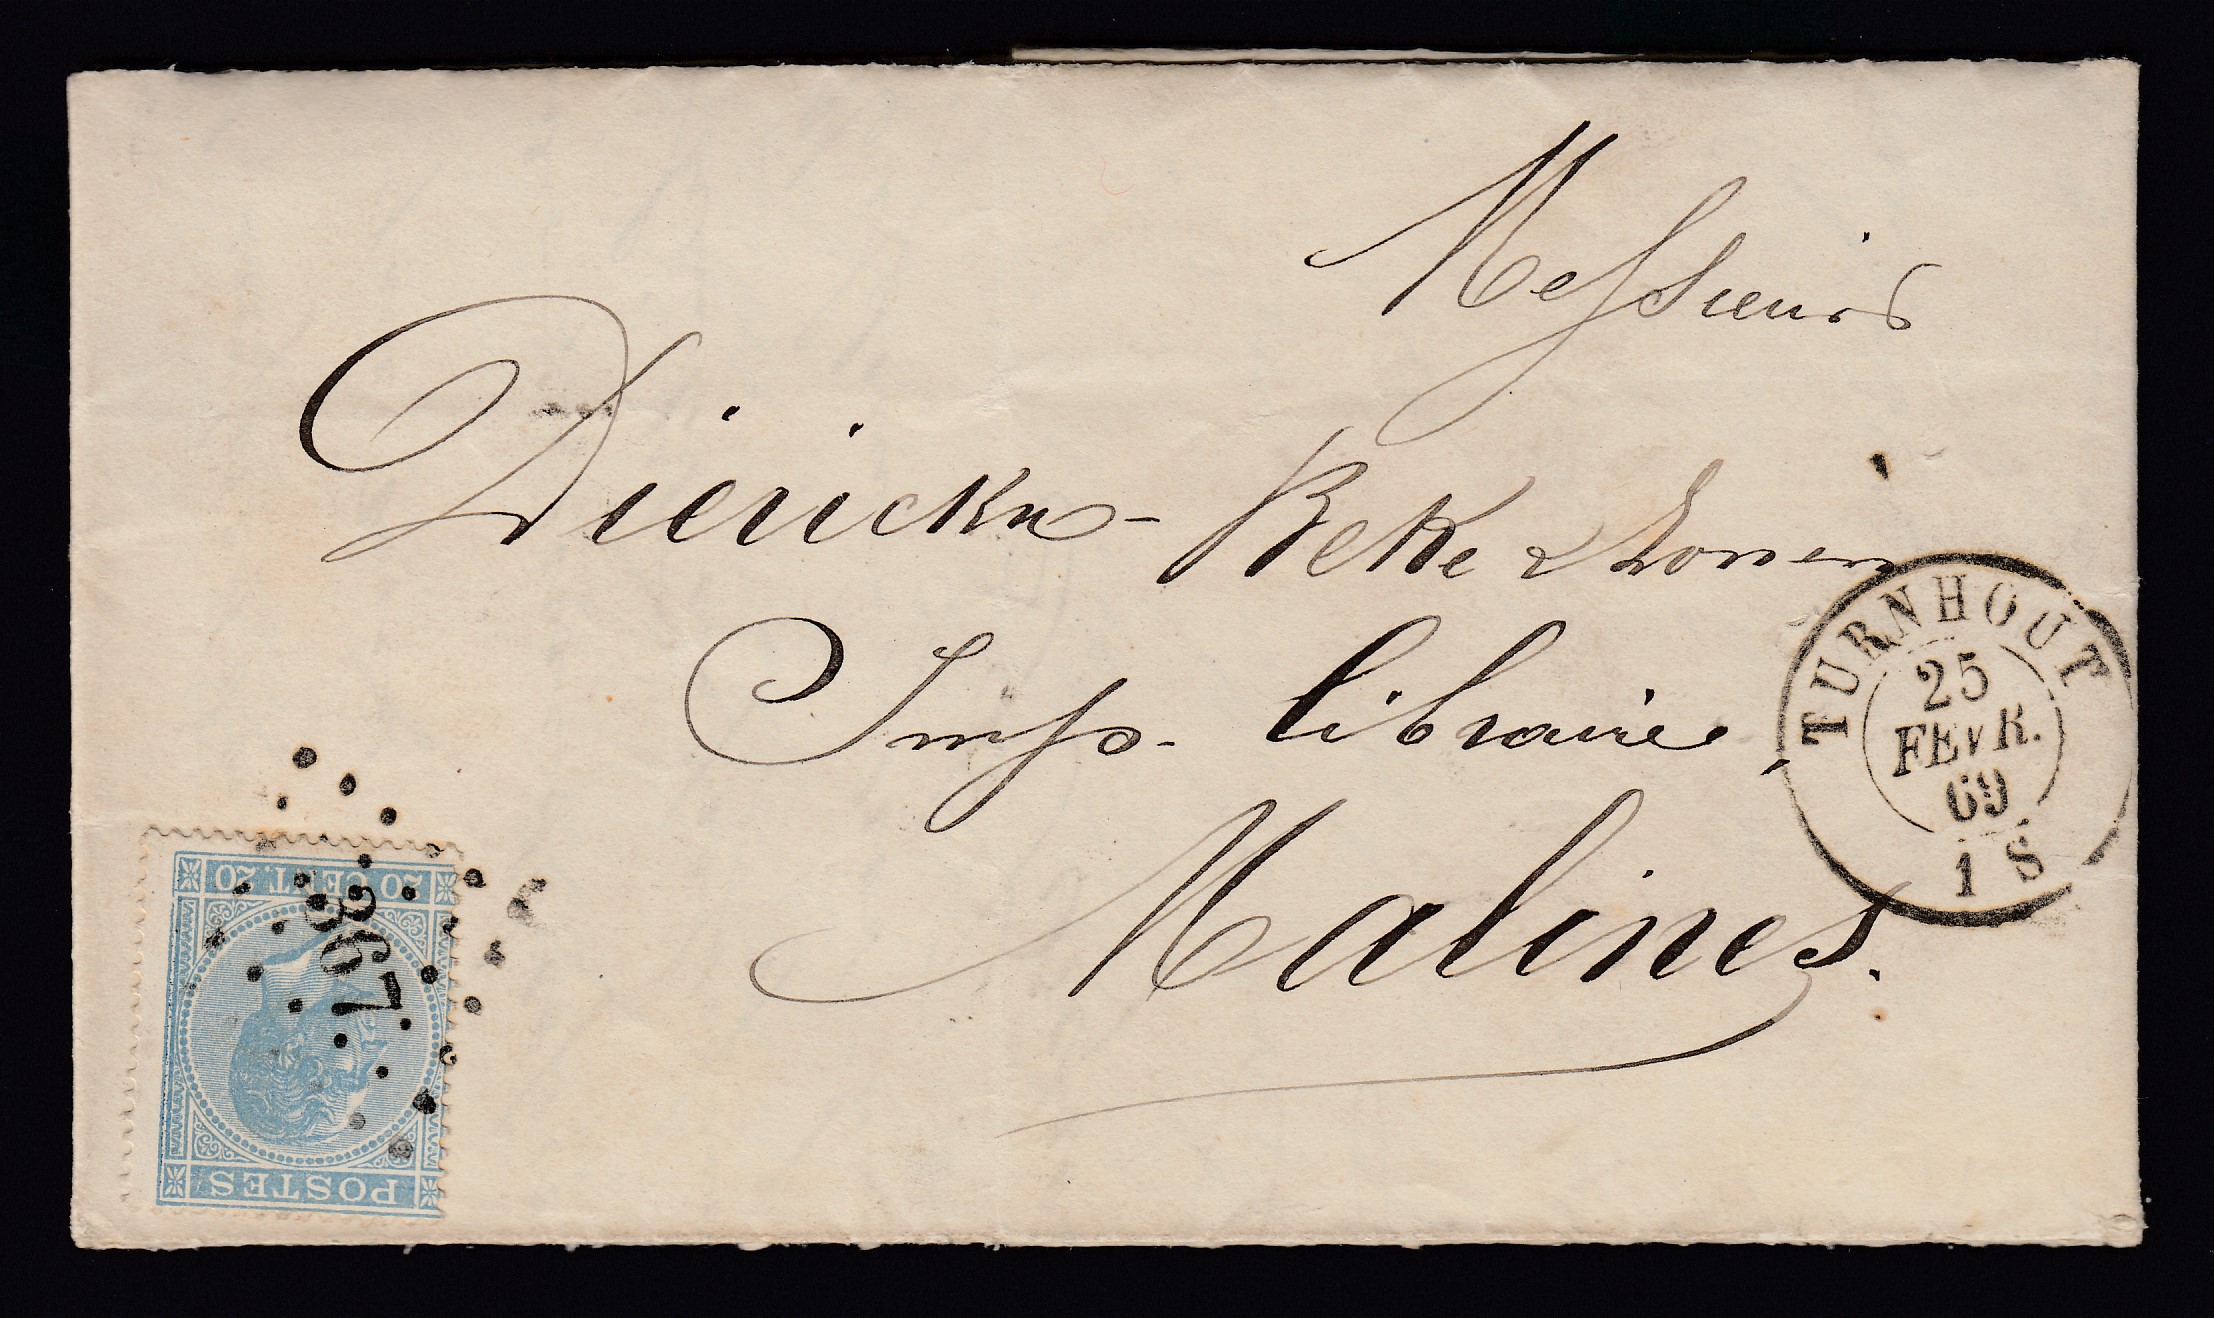 Messieurs
Dierickx-Beke & Zonen
Imp. libraires,
Malines.
TURNHOUT
25
FEVR.
69
1 S
20 CENT. 20
367
POSTES